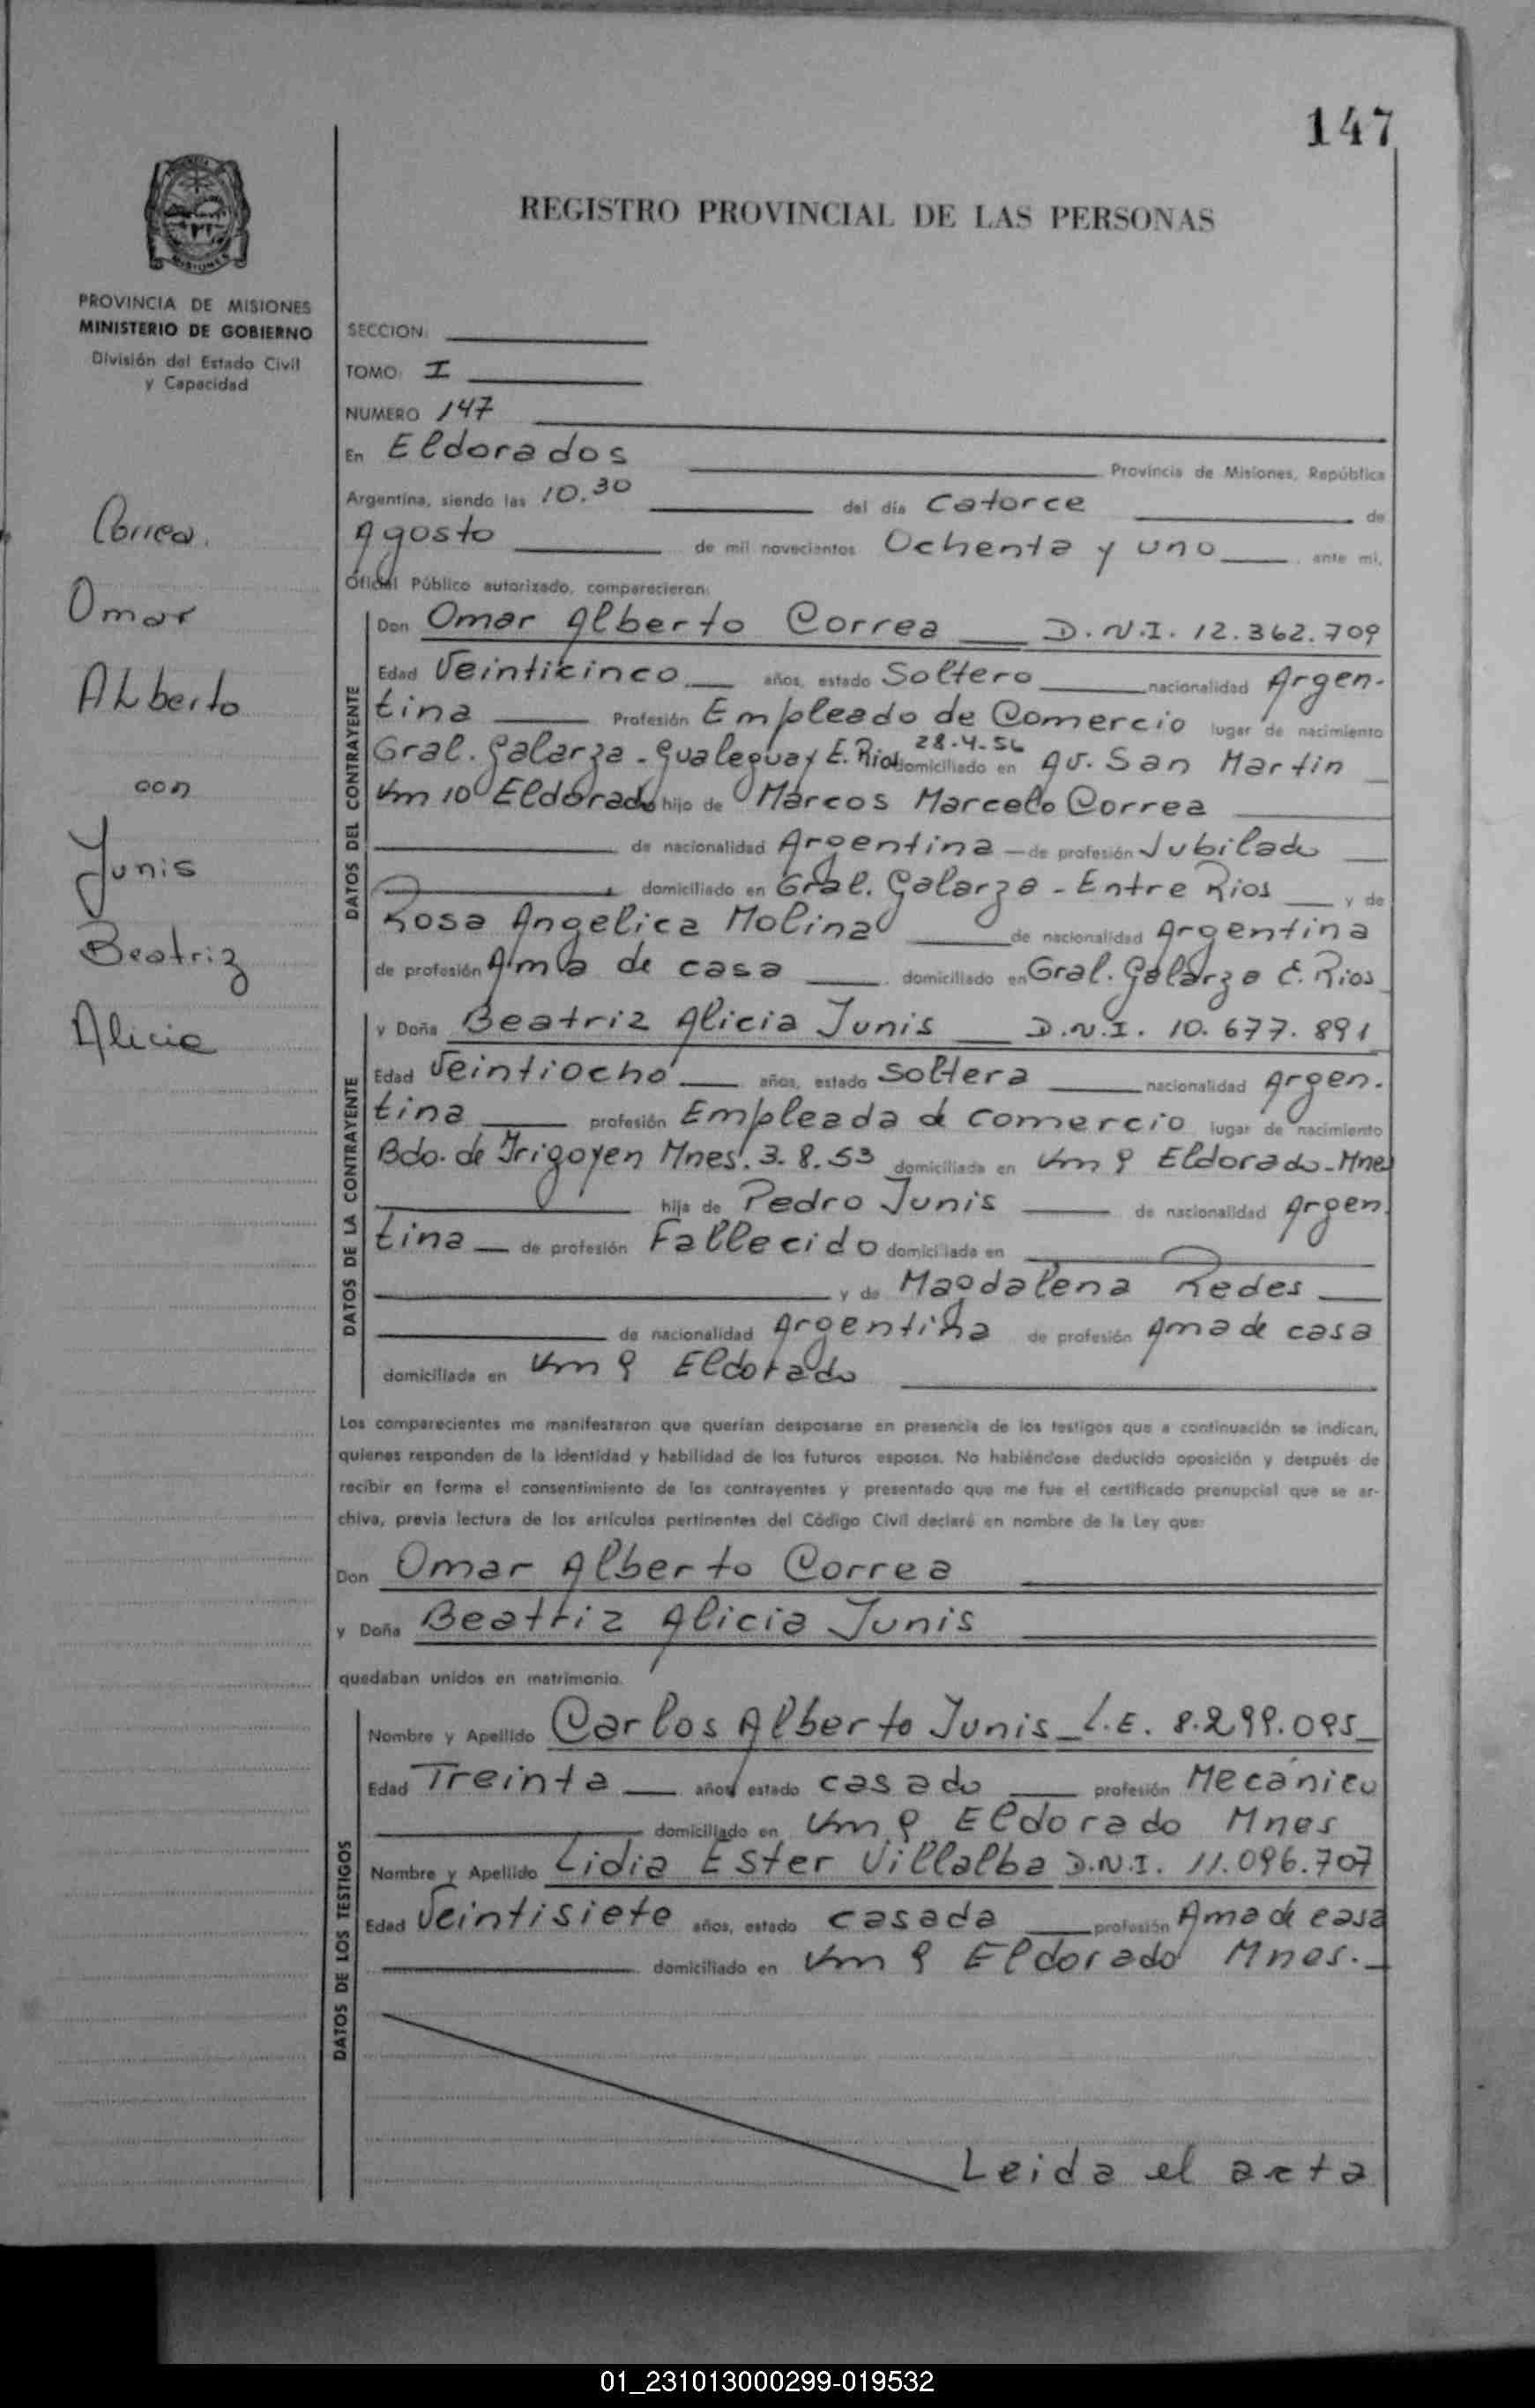 147
REGISTRO PROVINCIAL DE LAS PERSONAS
MISIONES
PROVINCIA DE MISIONES
MINISTERIO DE GOBIERNO
División del Estado Civil
y Capacidad
Correa.
Omar
Alberto
con
Junis
Beatriz
Alicia
SECCION:
TOMO: I
NUMERO 147
En Eldorados Provincia de Misiones, República
Argentina, siendo las 10.30 del día Catorce de
Agosto de mil novecientos Ochenta y uno ante mí,
Oficial Público autorizado, comparecieron:
DATOS DEL CONTRAYENTE
Don Omar Alberto Correa D.N.I. 12.362.709
Edad Veinticinco años, estado Soltero nacionalidad Argen-
tina Profesión Empleado de Comercio lugar de nacimiento
28-4-56
Gral. Galarza - Gualeguay E. Rios domiciliado en Av. San Martin
Km 10 Eldorado hijo de Marcos Marcelo Correa
de nacionalidad Argentina de profesión Jubilado
domiciliado en Gral. Galarza - Entre Rios y de
Rosa Angelica Molina de nacionalidad Argentina
de profesión Ama de casa domiciliado en Gral. Galarza E. Rios
DATOS DE LA CONTRAYENTE
y Doña Beatriz Alicia Junis D.N.I. 10.677.891
Edad Veintiocho años, estado Soltera nacionalidad Argen-
tina profesión Empleada de comercio lugar de nacimiento
Bdo. de Irigoyen Mnes. 3.8.53 domiciliada en Km 9 Eldorado-Mnes
hija de Pedro Junis de nacionalidad Argen
tina de profesión Fallecido domiciliado en
y de Magdalena Redes
de nacionalidad Argentina de profesión Ama de casa
domiciliada en Km 9 Eldorado
Los comparecientes me manifestaron que querían desposarse en presencia de los testigos que a continuación se indican,
quienes responden de la identidad y habilidad de los futuros esposos. No habiéndose deducido oposición y después de
recibir en forma el consentimiento de los contrayentes y presentado que me fue el certificado prenupcial que se ar-
chiva, previa lectura de los artículos pertinentes del Código Civil declaré en nombre de la Ley que:
Don Omar Alberto Correa
y Doña Beatriz Alicia Junis
quedaban unidos en matrimonio.
DATOS DE LOS TESTIGOS
Nombre y Apellido Carlos Alberto Junis L.E. 8.299.095
Edad Treinta años, estado casado profesión Mecanico
domiciliado en Km 9 Eldorado Mnes
Nombre y Apellido Lidia Ester Villalba D.N.I. 11.096.707
Edad Veintisiete años, estado casada profesión Ama de casa
domiciliado en Km 9 Eldorado Mnes.
Leida el acta
01_231013000299-019532